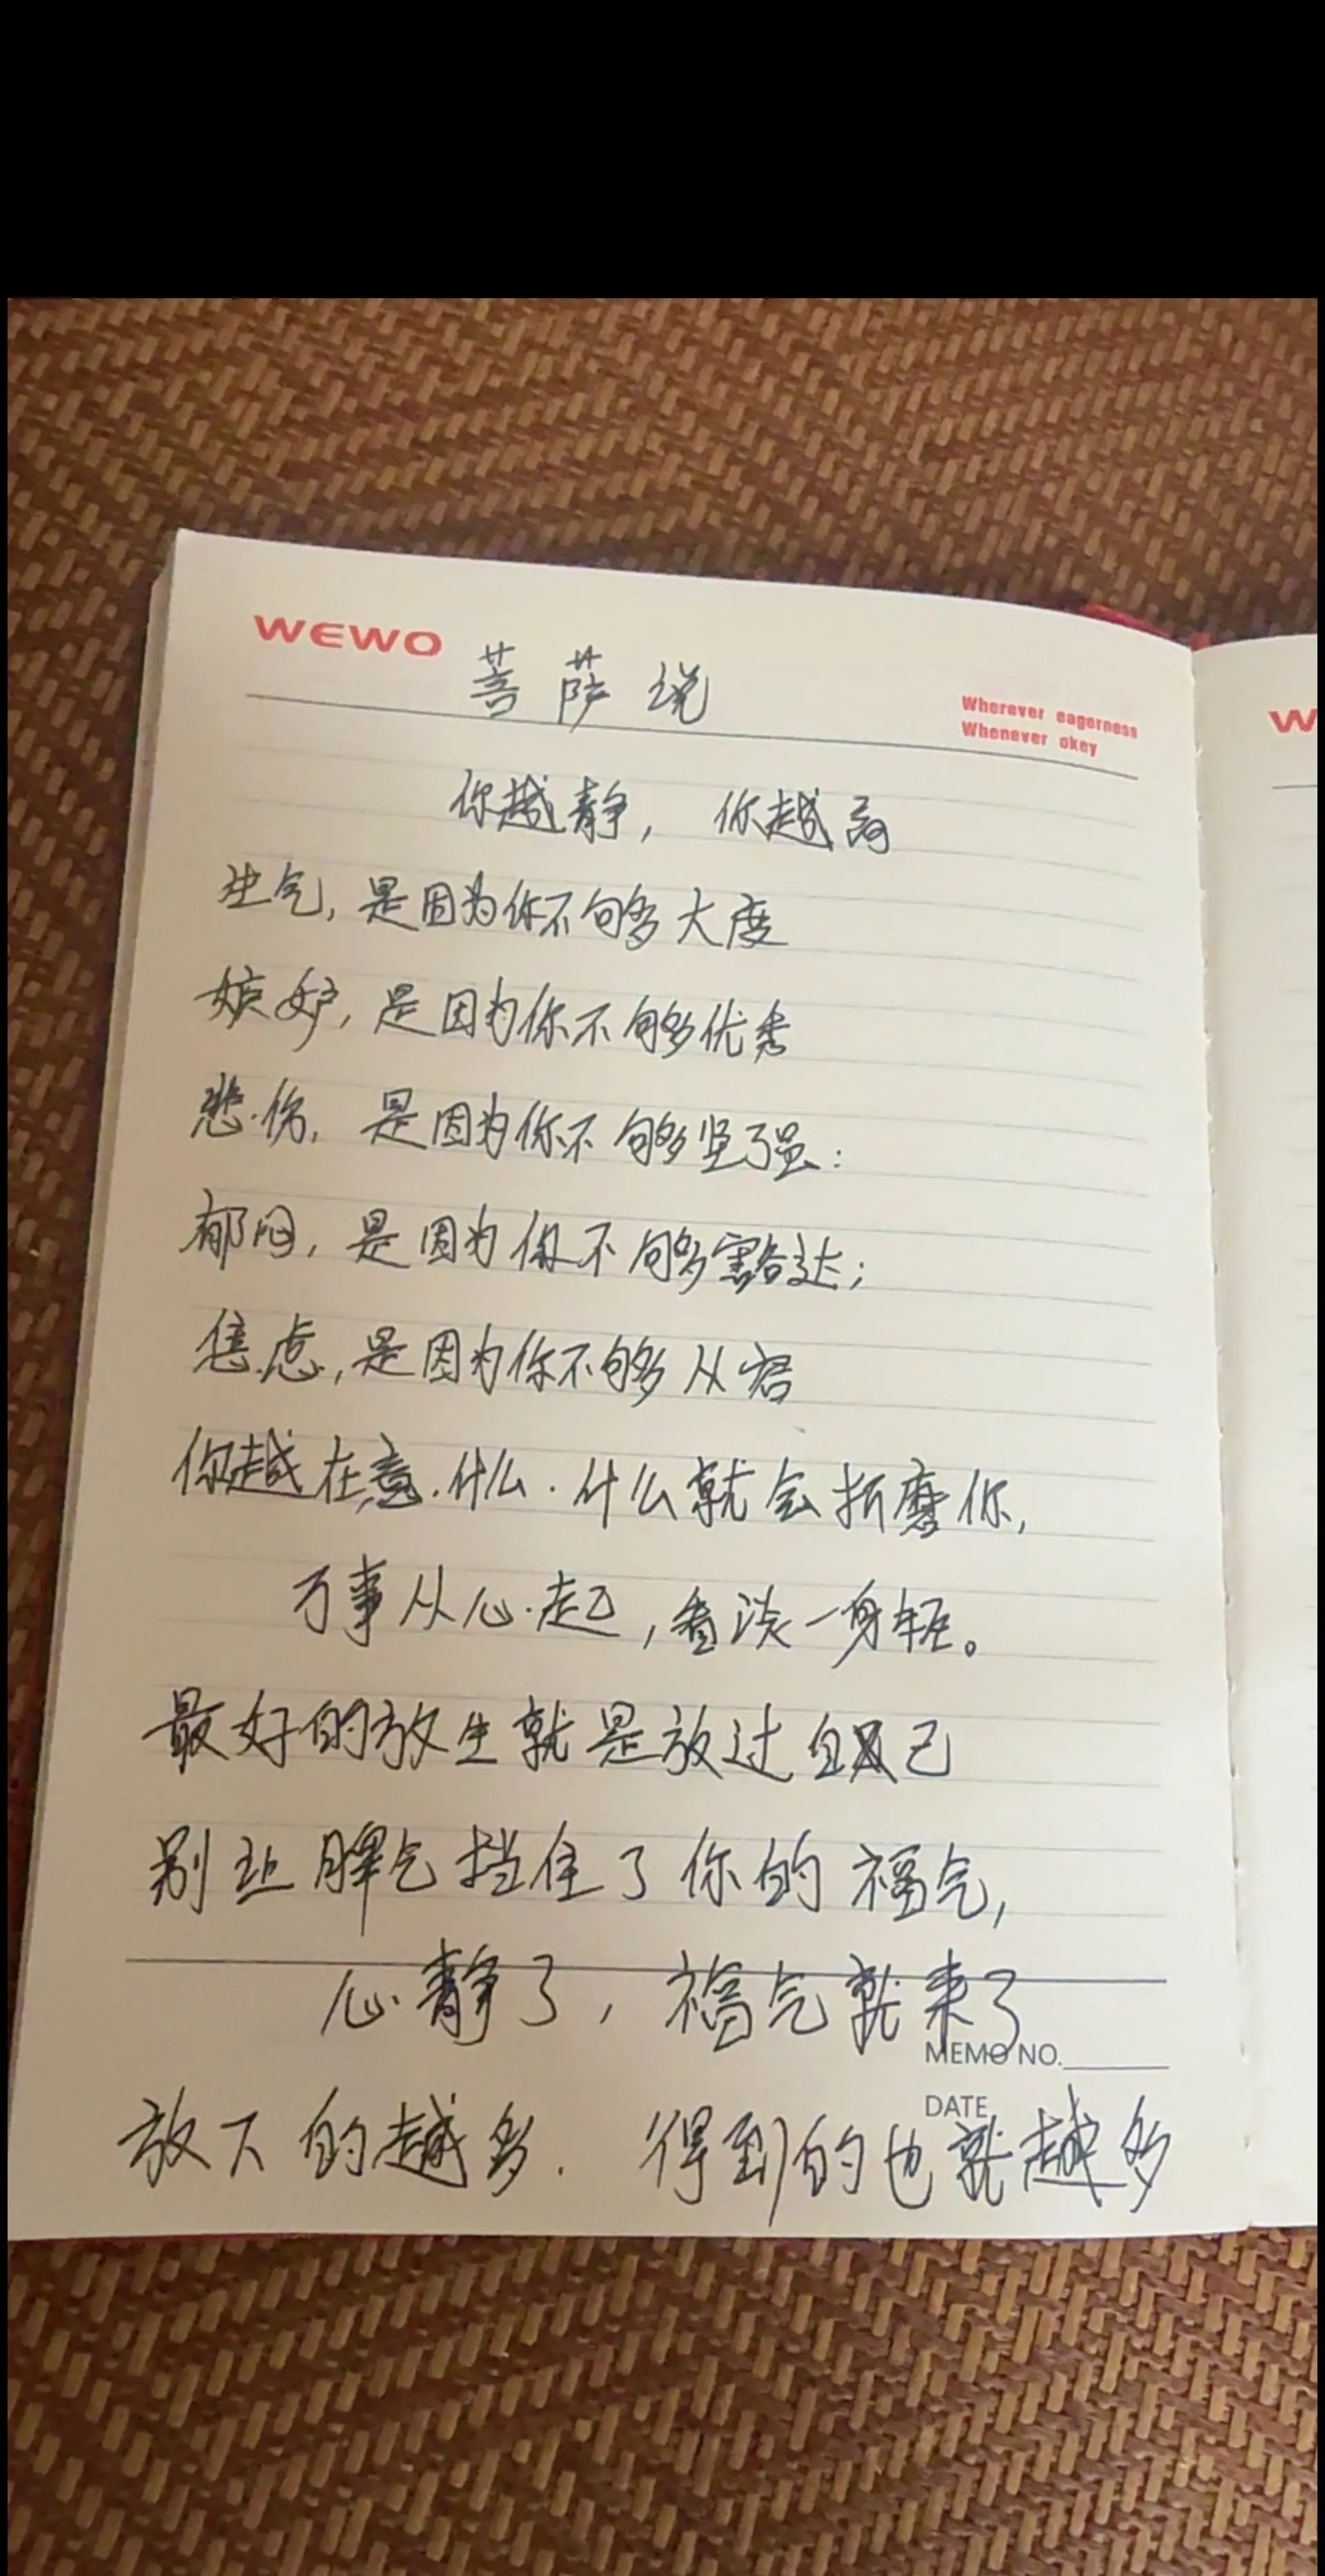 WEWO
菩萨说
Wherever eagerness
Whenever okey
W
你越静，你越高
生气，是因为你不够大度
嫉妒，是因为你不够优秀
悲伤，是因为你不够坚强：
郁闷，是因为你不够豁达；
焦虑，是因为你不够从容
你越在意什么．什么就会折磨你，
万事从心起，看淡一身轻。
最好的放生就是放过自己
别让脾气挡住了你的福气，
心静了，福气就来了
MEMO NO.
DATE
放下的越多．得到的也就越多